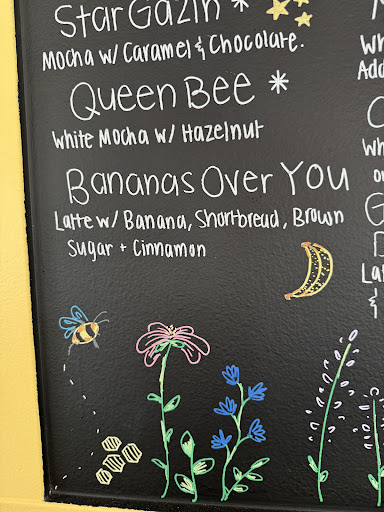 Star Gazin *
Mocha w/ Caramel & Chocolate.
Queen Bee *
White Mocha w/ Hazelnut
Bananas Over You
Latte w/ Banana, Shortbread, Brown
Sugar + Cinnamon
Wh
Add
Wh
Lat
&